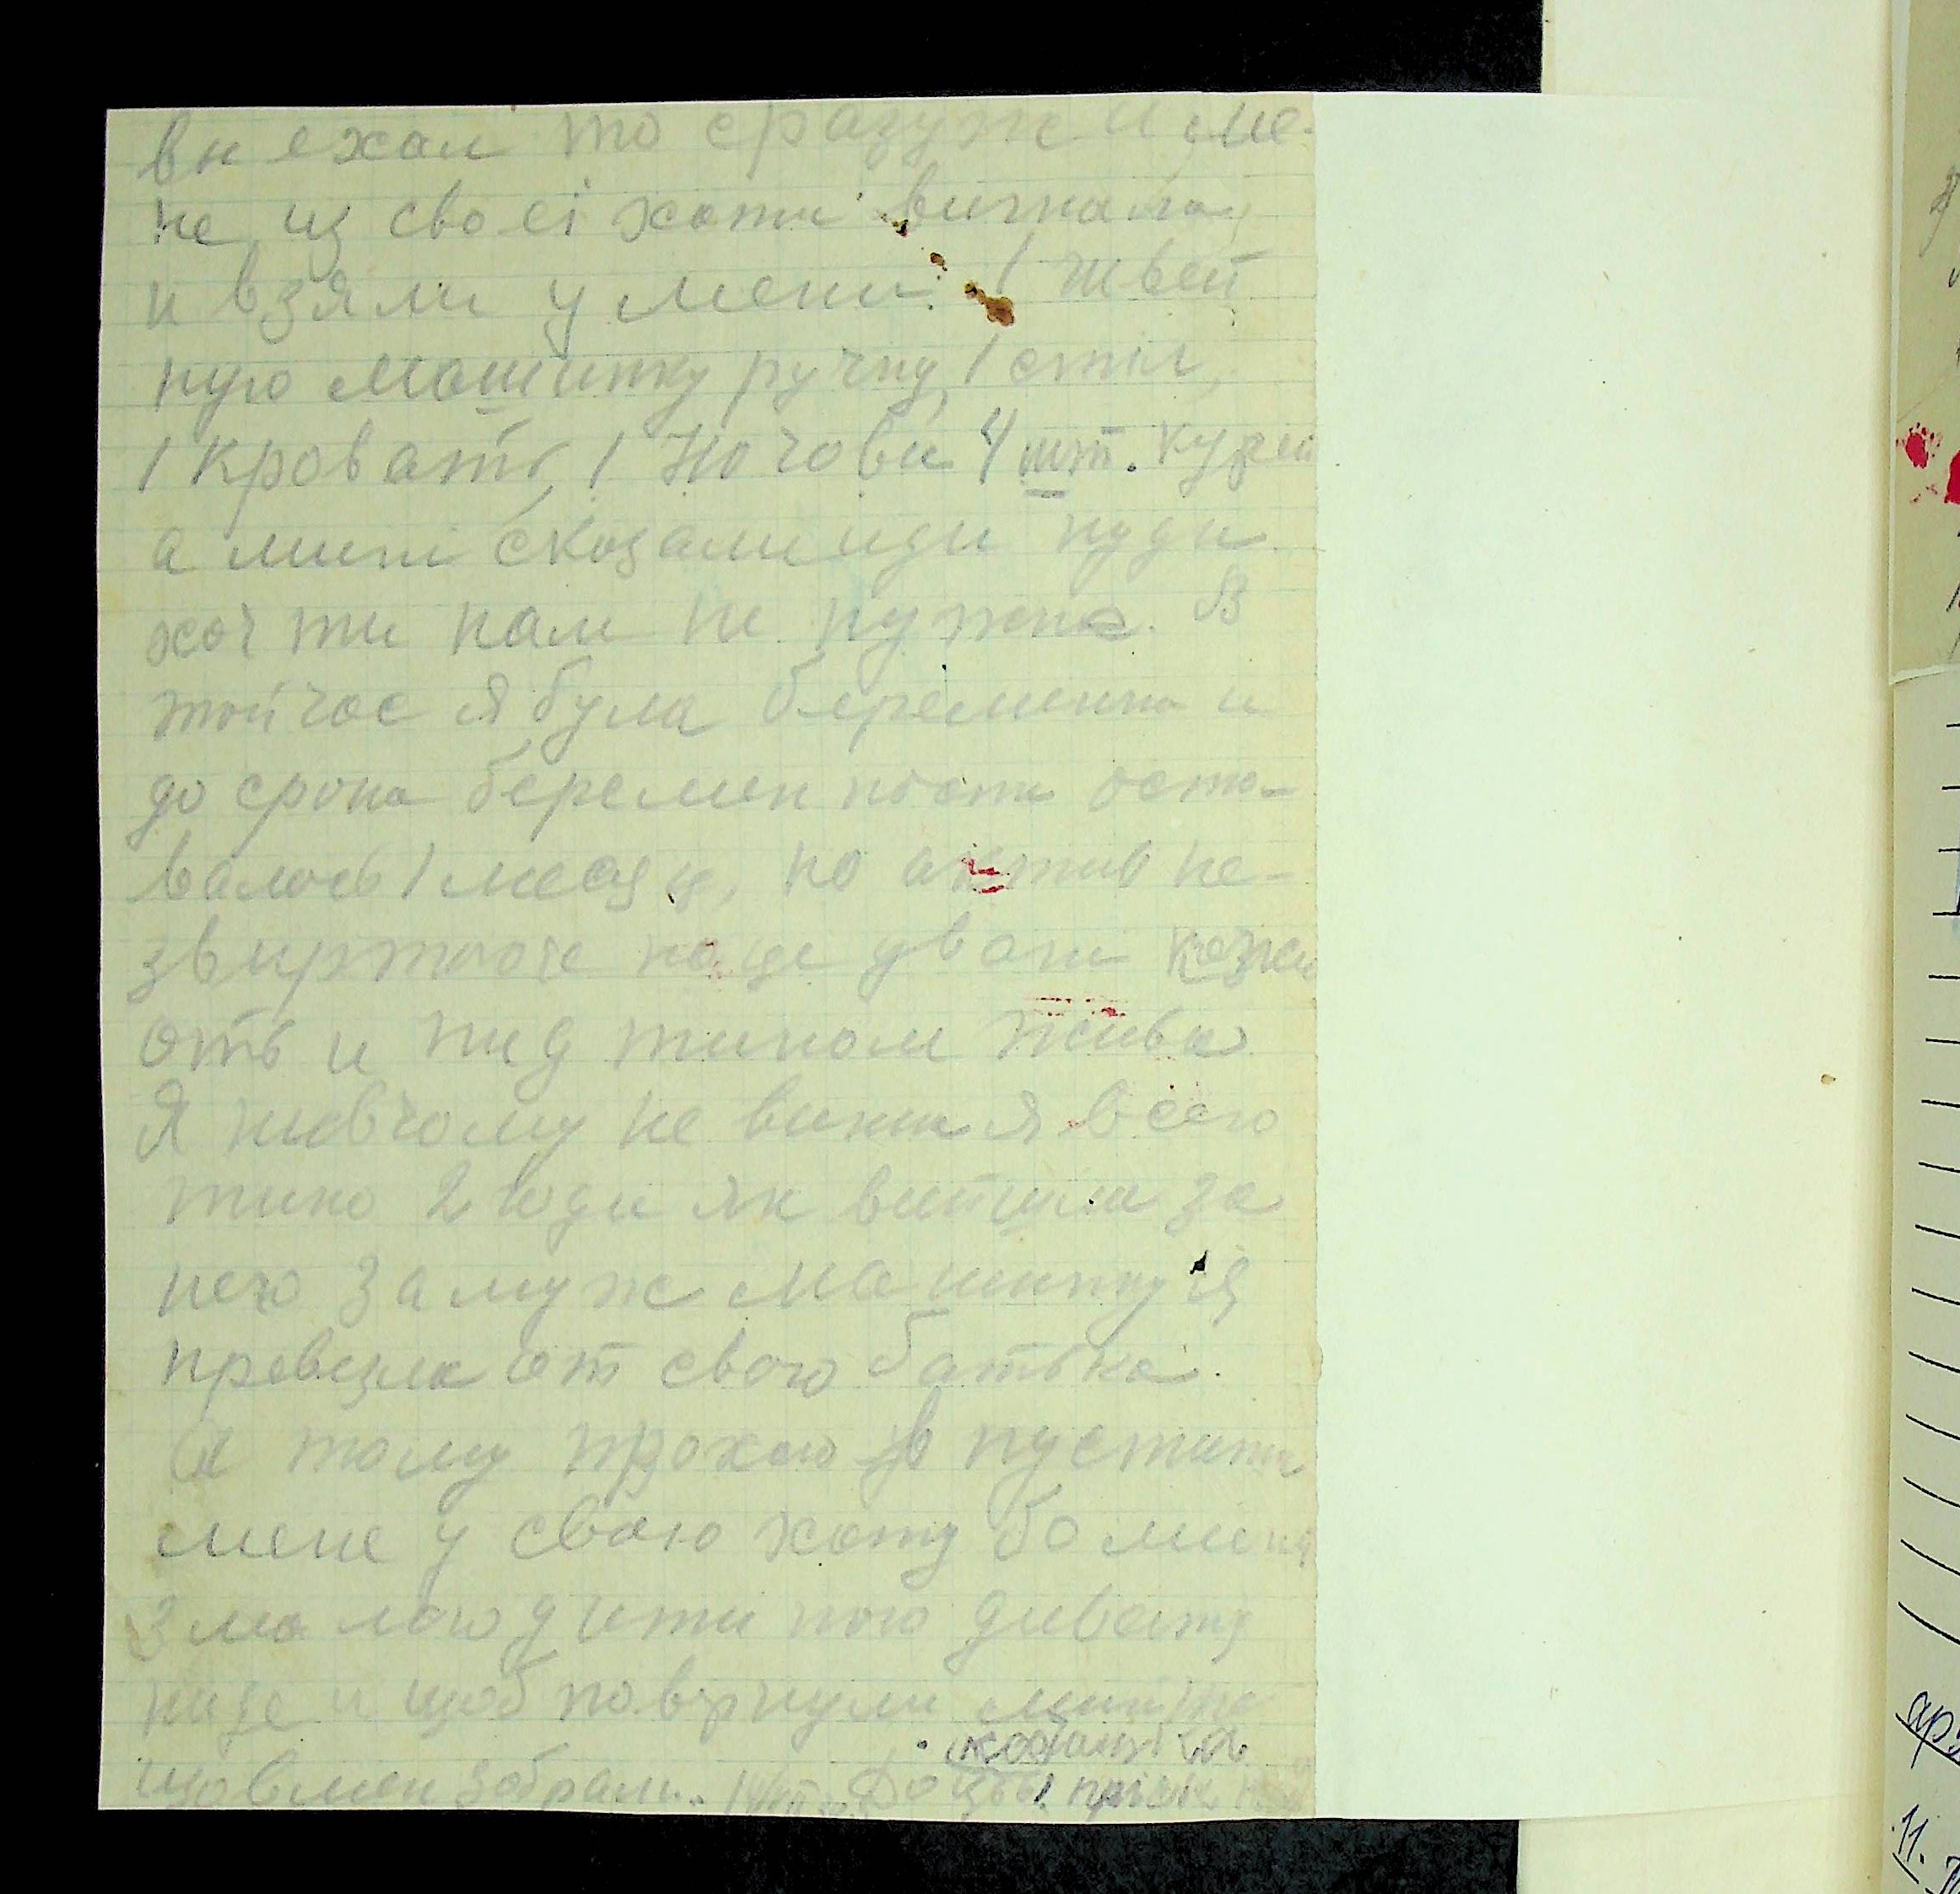 виехал то сразу ж и ме-
не из своеі хати вигнали,
и взяли у мени 1 швей
ную машинку ручну, 1 стіл,
1 кровать, 1 Ночови 4 шт. курей
а мині сказали иди куди
хоч ти нам не нужна. В
той час я була беременна и
до срока беременности оста-
валось 1 месяц, но актив не-
звиртоое на це уваги кажу
оть и пид тином живи
Я нивчому не вина я всего
тико 2 годи як вийшла за
него замуж машинку я
превезла от свого батька.
А тому прохаю в пустити
мене у свою хату бо мини
з малою дитиною диватц
нізе и щоб повернули мині те
що в мен забрали.